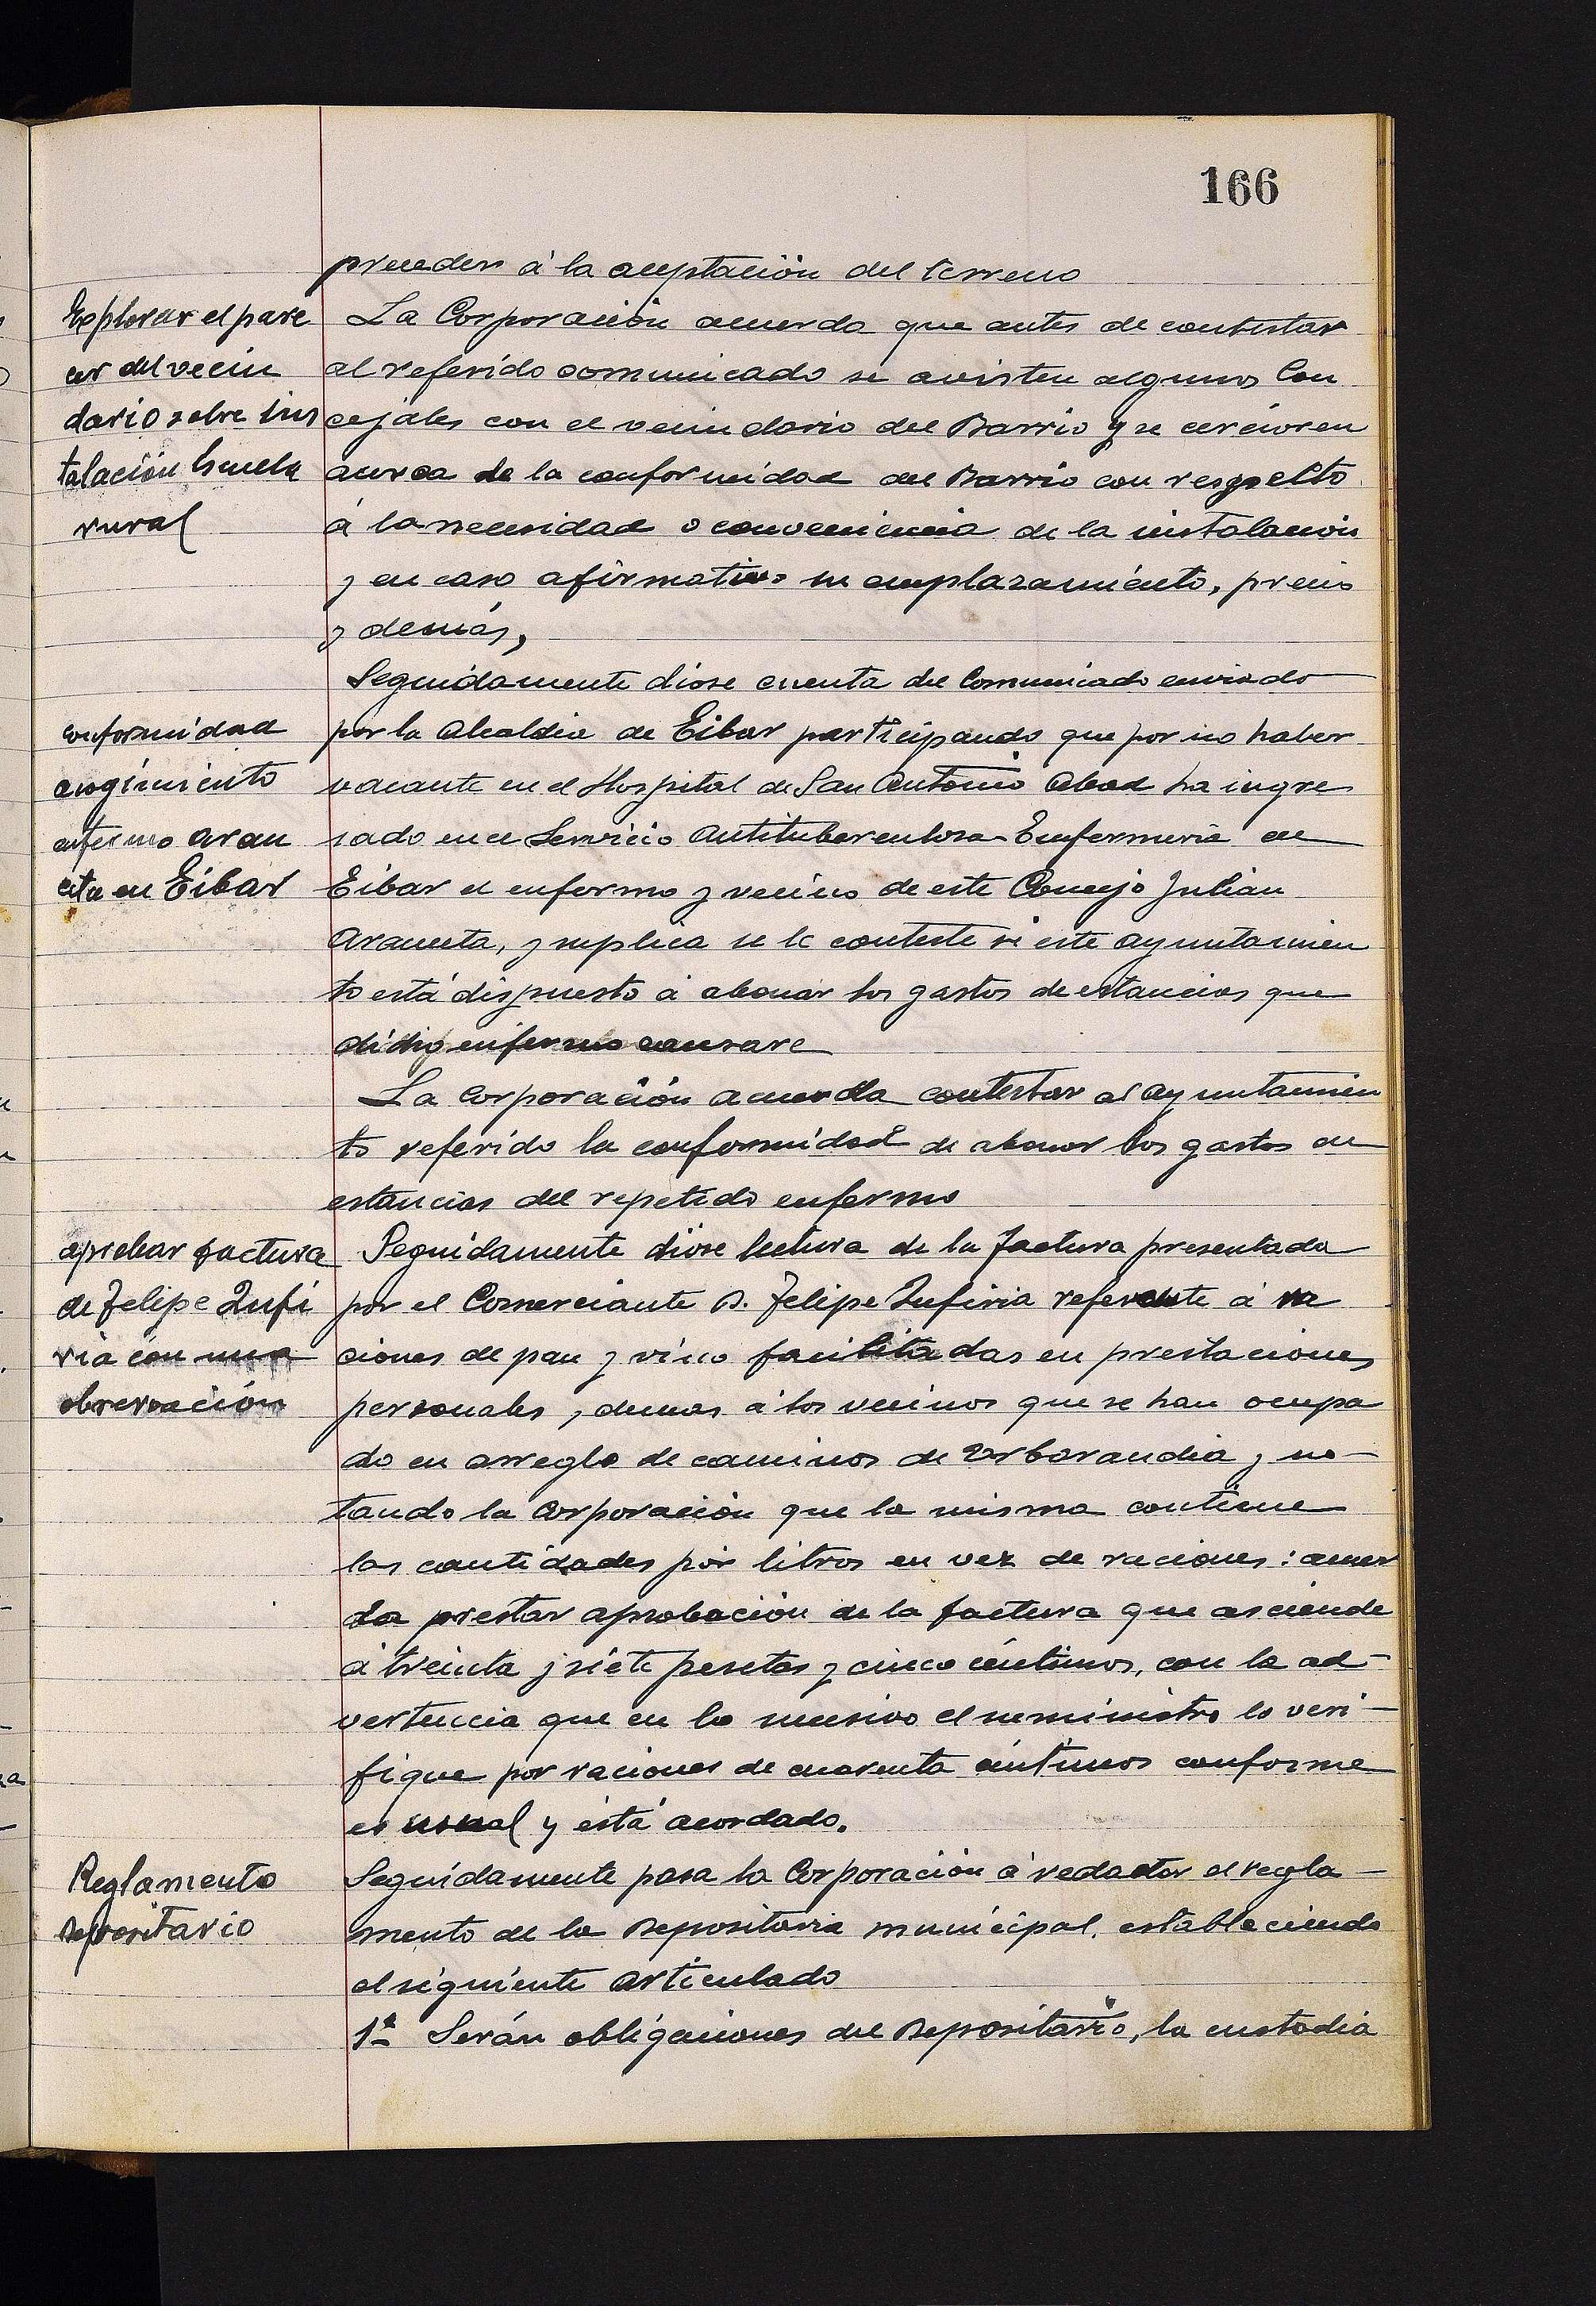 166
proceder á la aceptación del terreno
Explorar el pare
cer del vecin
dario sobre ins
talación Escuela
rural
La Corporación acuerda que antes de contestar
al referido comunicado se avisten algunos Con
cejales con el vecindario del Barrio y se cercioren
acerca de la conformidad del Barrio con respecto
á la necesidad o conveniencia de la instalación
y en caso afirmativo su emplazamiento, precio
y demás,
Seguidamente dióse cuenta del Comunicado enviado
conformidad
acogimiento
enfermo Aran
ceta en Eibar
por la Alcaldia de Eibar participando que por no haber
vacante en el Hospital de San Antonio Abad ha ingre
sado en el Servicio Antituberculosa Enfermeria de
Eibar el enfermo y vecino de este Concejo Julian
Aranceta, y suplica se le conteste si este ayuntamien
to está dispuesto á abonar los gastos de estancias que
dicho enfermo causare
La Corporación acuerda contestar al ayuntamien
to referido la conformidad de abonar los gastos de
estancias del repetido enfermo
aprobar factura
de Felipe Zufi
ria con una
observación
Seguidamente dióse lectura de la factura presentada
por el Comerciante D. Felipe Zufiria referente á ra
ciones de pan y vino facilitadas en prestaciones
personales, demas á los vecinos que se han ocupa
do en arreglo de caminos de y no-
tando la Corporación que la misma contiene
las cantidades por litros en vez de raciones: acuer
da prestar aprobación de la factura que asciende
á treinta y siete pesetas y cinco céntimos, con la ad-
vertencia que en lo sucesivo el suministro lo veri-
fique por raciones de cuarenta céntimos conforme
es usual y está acordado.
Reglamento
Depositario
Seguidamente pasa la Corporación á redactar el regla-
mento de la Depositaria municipal, estableciendo
el siguiente articulado
1ª Serán obligaciones del Depositario, la custodia